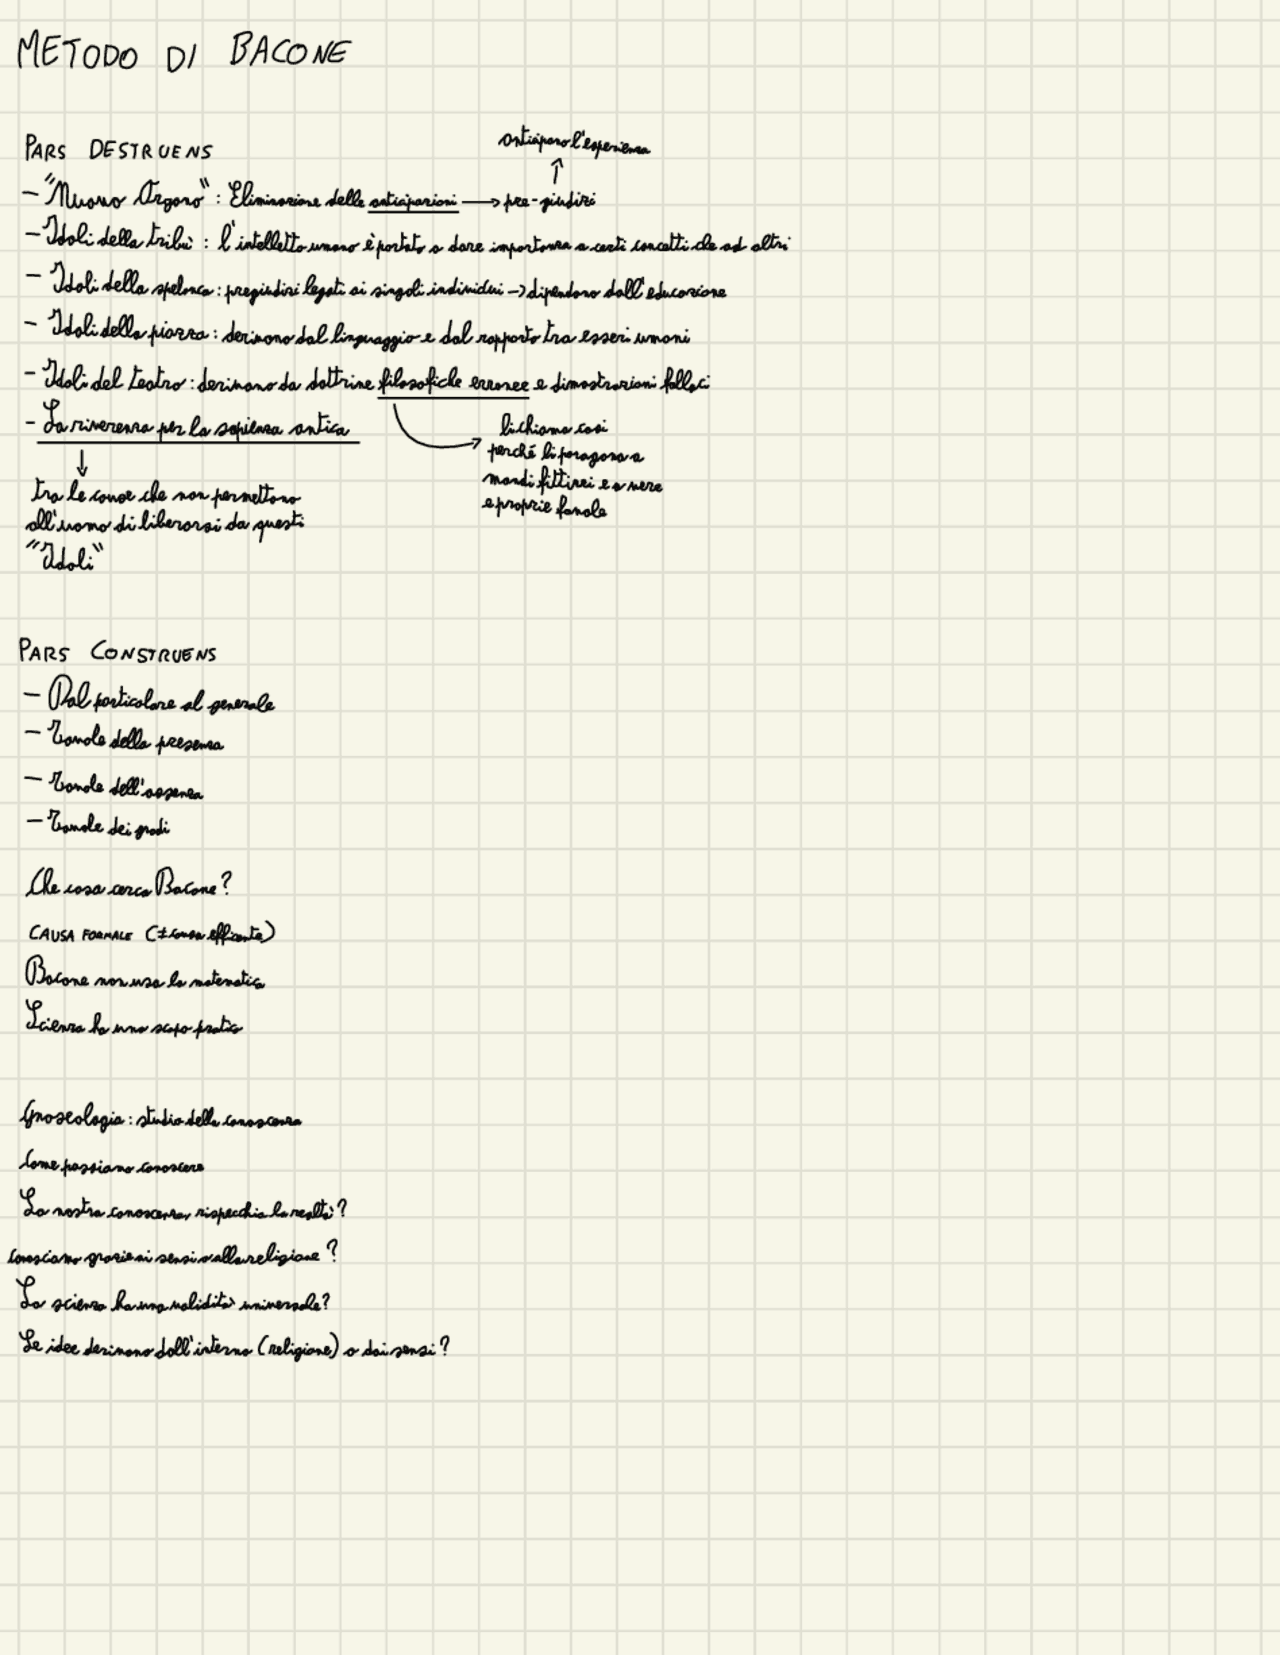 METODO DI BACONE
PARS DESTRUENS
anticipano l'esperienza
↑
- "Nuovo Organo" : Eliminazione delle anticipazioni → pre-giudizi
- Idoli della tribù : l'intelletto umano è portato a dare importanza a certi concetti che ad altri
- Idoli della spelonca : pregiudizi legati ai singoli individui → dipendono dall'educazione
- Idoli della piazza : derivano dal linguaggio e dal rapporto tra esseri umani
- Idoli del teatro : derivano da dottrine filosofiche erronee e dimostrazioni fallaci
- La riverenza per la sapienza antica
li chiama così
perché li paragona a
mondi fittizi e a vere
e proprie favole
↓
tra le cause che non permettono
all'uomo di liberarsi da questi
"Idoli"
PARS CONSTRUENS
- Dal particolare al generale
- Tavole della presenza
- Tavole dell'assenza
- Tavole dei gradi
Che cosa cerca Bacone?
CAUSA FORMALE (≠ causa efficiente)
Bacone non usa la matematica
Scienza ha uno scopo pratico
Gnoseologia : studio della conoscenza
Come possiamo conoscere
La nostra conoscenza, rispecchia la realtà?
Conosciamo grazie ai sensi o alla religione?
La scienza ha una validità universale?
Le idee derivano dall'interno (religione) o dai sensi?